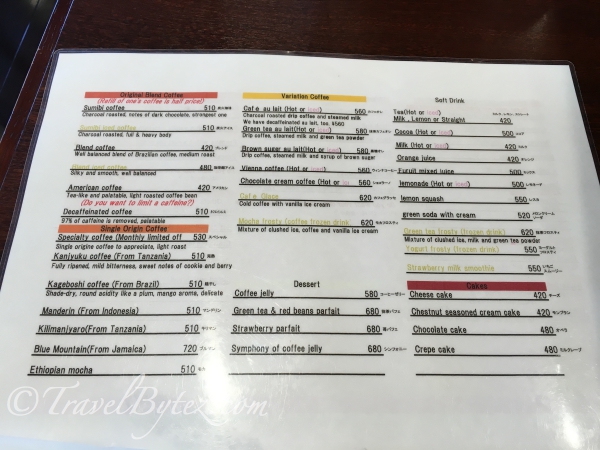 Original Blend Coffee
(Refill of one's coffee is half price!)
Sumibi coffee 510
Charcoal roasted, notes of dark chocolate, strongest one
Sumibi iced coffee 510
Charcoal roasted, full & heavy body
Blend coffee 420 ブレンド
Well balanced blend of Brazilian coffee, medium roast
Blend iced coffee 480
Silky and smooth, well balanced
American coffee 420 アメリカン
Tea-like and paletable, light roasted coffee bean
(Do you want to limit a caffeine?)
Decaffeinated coffee 510
97% of caffeine is removed, paletable
Single Origin Coffee
Specialty coffee (Monthly limited off 530
Single origin coffee to appreciate, light roast
Kanjyuku coffee (From Tanzania) 510
Fully ripened, mild bitterness, sweet notes of cookie and berry
Kageboshi coffee (From Brazil) 510
Shade-dry, round acidity like a plum, mango aroma, delicate
Manderin (From Indonesia) 510 マンデリン
Kilimanjyaro(From Tanzania) 510
Blue Mountain(From Jamaica) 720
Ethiopian mocha 510
Variation Coffee
Café au lait (Hot or iced) 560
Charcoal roasted drip coffee and steamed milk
We have decaffeinated au lait, too. ¥560
Green tea au lait(Hot or iced) 580
Drip coffee, steamed milk and green tea powder
Brown sugar au lait(Hot or iced) 580
Drip coffee, steamed milk and syrup of brown sugar
Vienna coffee (Hot or iced) 560
Chocolate cream coffee (Hot or ic 560
Café Glace 620
Cold coffee with vanilla ice cream
Mocha frosty (coffee frozen drink 620
Mixture of slushed ice, coffee and vanilla ice cream
Dessert
Coffee jelly 580 コーヒーゼリー
Green tea & red beans parfait 680
Strawberry parfait 680
Symphony of coffee jelly 680 シンフォニー
Soft Drink
Tea(Hot or iced)
Milk , Lemon or Straight 420
Cocoa (Hot or iced) 500 ココア
Milk (Hot or iced) 420
Orange juice 420
Furuit mixed juice 500
lemonade (Hot or iced) 500
lemon squash 550
green soda with cream 520
Green tea frosty (frozen drink) 620
Mixture of slushed ice, milk and green tea powder
Yogurt frosty (frozen drink) 550
Strawberry milk smoothie 550
Cakes
Cheese cake 420
Chestnut seasoned cream cake 420 モンブラン
Chocolate cake 480
Crepe cake 480 ミルクレープ
© TravelBytez.com